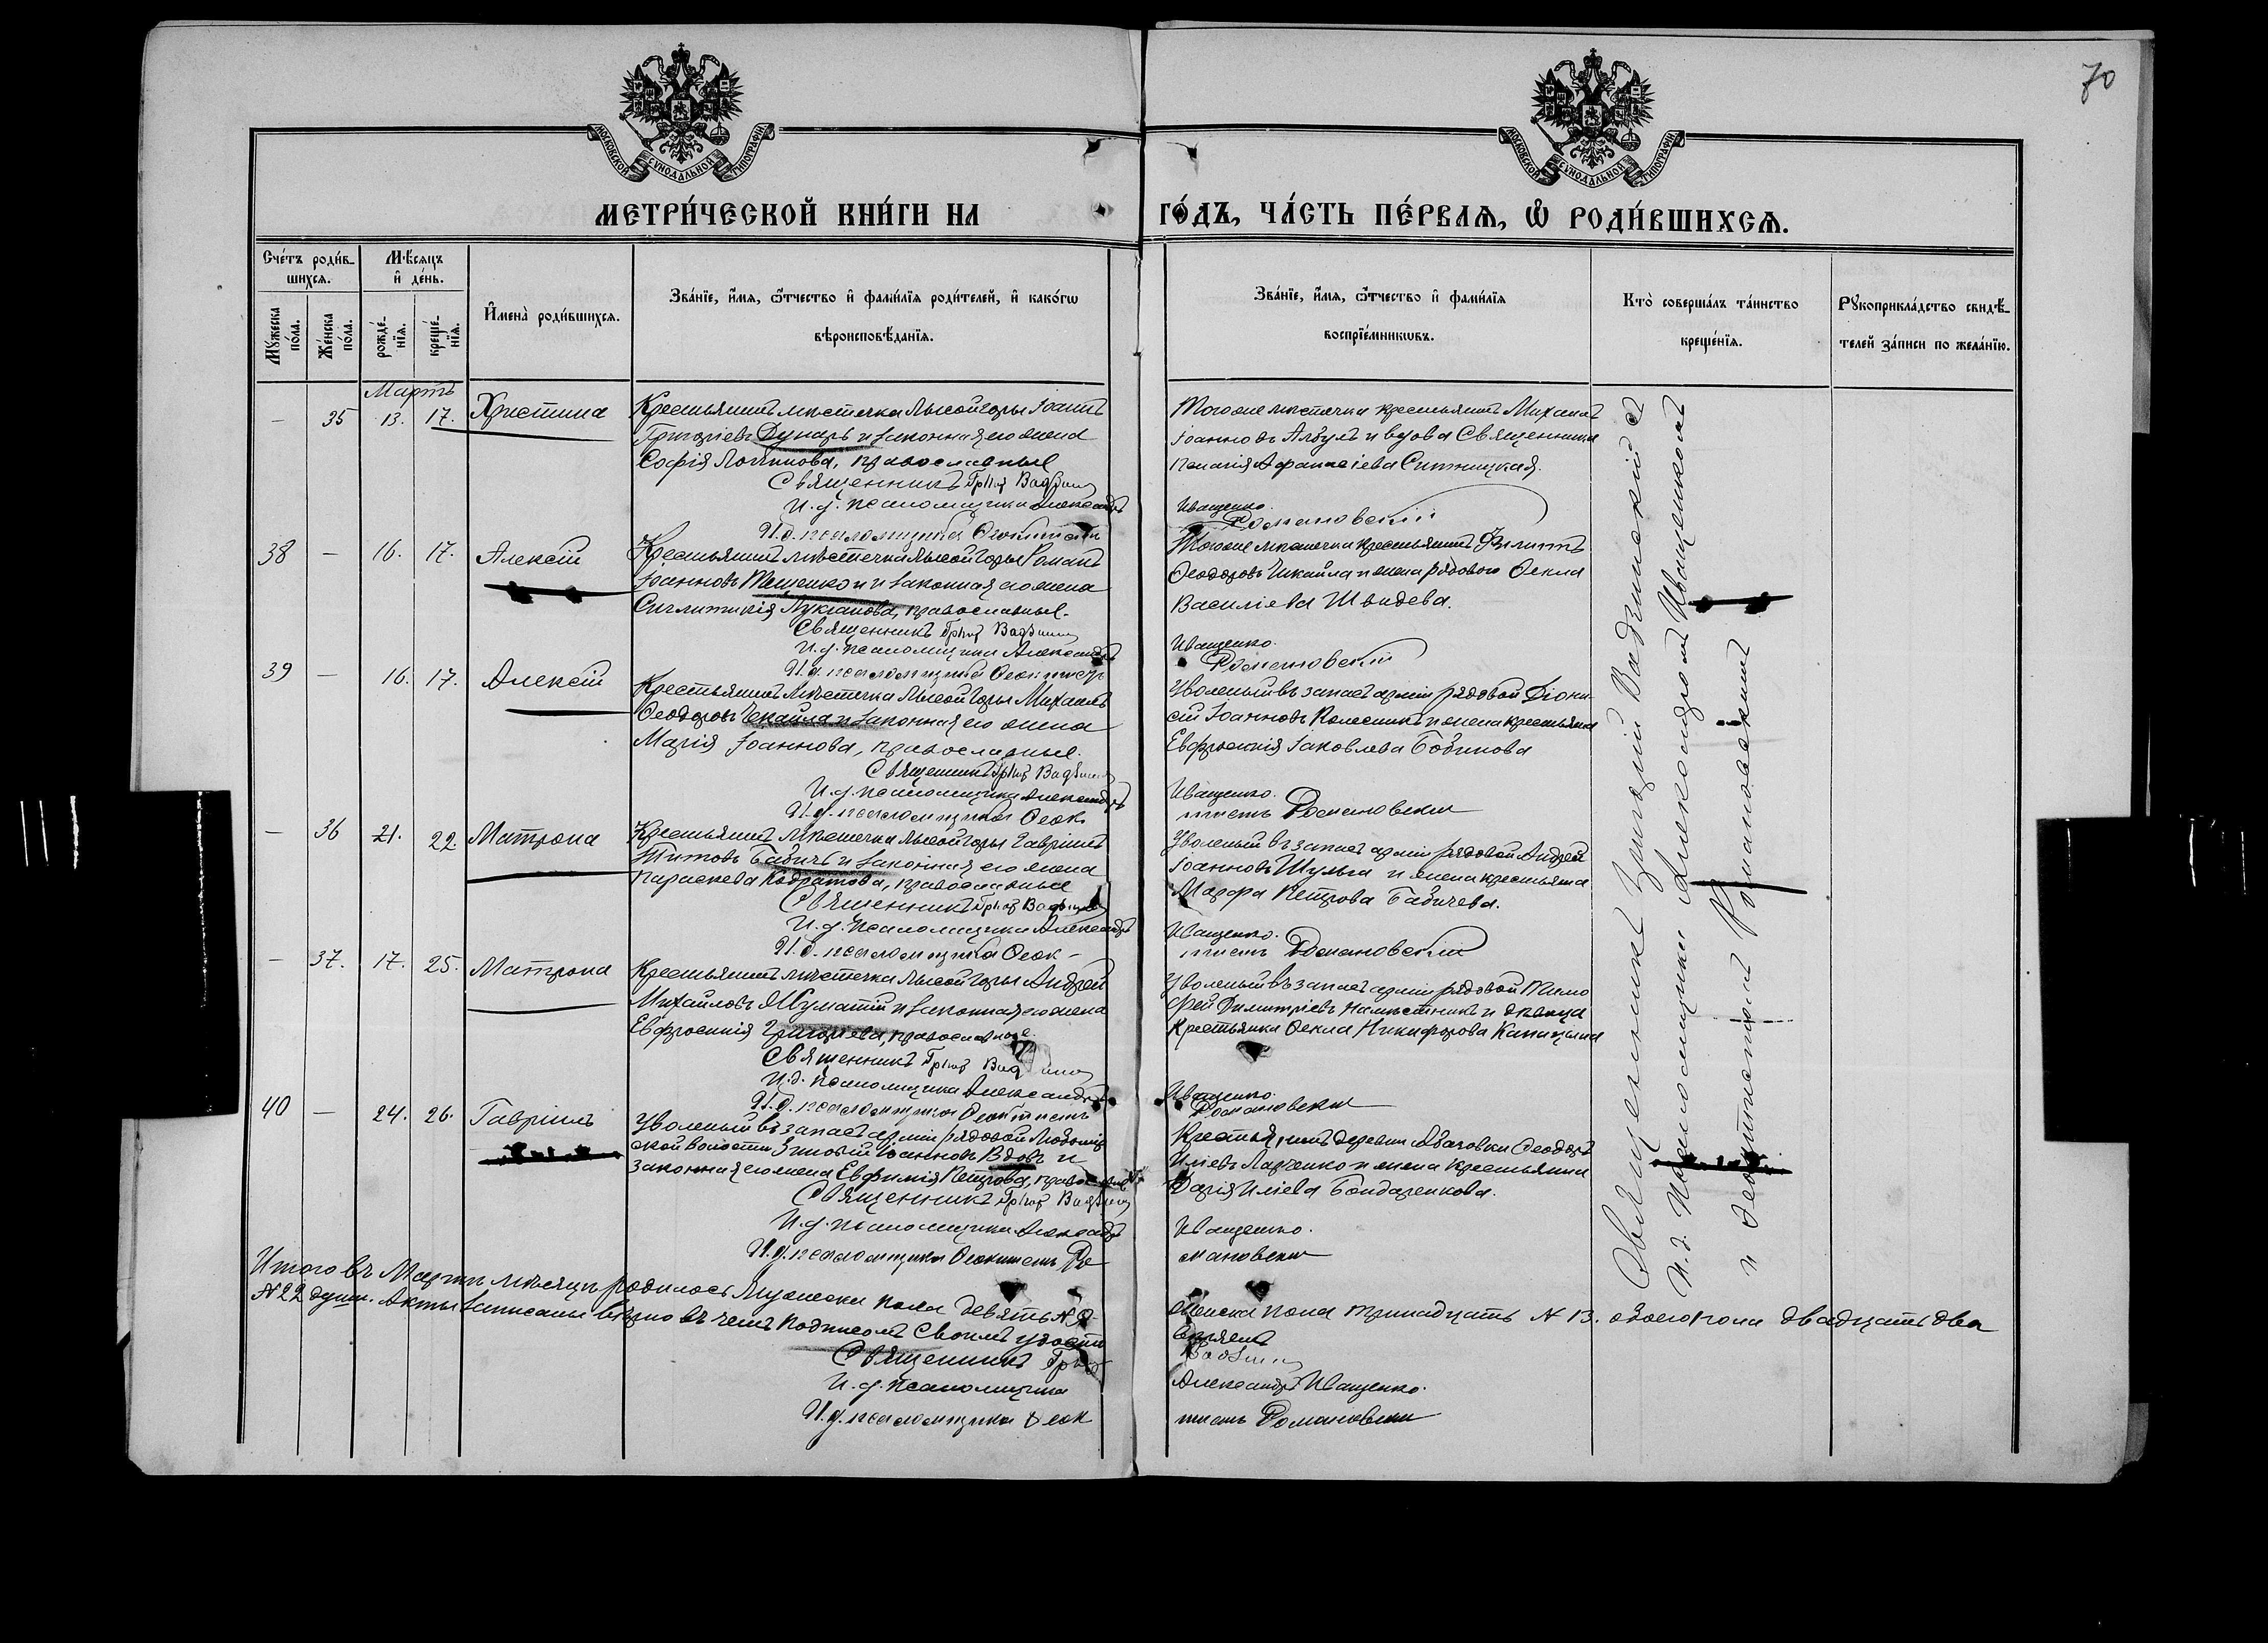 70
МОСКОВСКОЙ СѴНОДАЛЬНОЙ ТИПОГРАФІИ
МОСКОВСКОЙ СѴНОДАЛЬНОЙ ТИПОГРАФІИ
МЕТРИ́ЧЕСКОЙ КНИ́ГИ НА ГО́ДЪ, ЧА́СТЬ ПЕ́РВАѦ, Ѡ҆ РОДИ́ВШИХСѦ.
Сче́тъ роди́в-
шихся.
Мѣ́сяцъ
и҆ де́нь.
Мꙋ́жеска по́ла.
Же́нска по́ла.
рожде́-
нїѧ.
креще́-
нїѧ.
И҆мена̀ роди́вшихсѧ.
Зва́нїе, и҆́мѧ, ѻ҆́тчество и҆ фамилїѧ роди́телей, и҆ како́гѡ
вѣроисповѣ́данїѧ.
Зва́нїе, и҆́мѧ, ѻ҆́тчество и҆ фами́лїѧ
воспрїе́мникѡвъ.
Кто̀ соверша́лъ та́инство
креще́нїѧ.
Рꙋкоприкла́дство свидѣ́-
телей за́писи по жела́нїю.
Мартъ
— 35 13. 17. Христина
Крестьянинъ мѣстечка Лысой горы Іоаннъ
Григоріевъ и законная его жена
Софія Логинова, православные
Священникъ Григ Вадзин
И. д. псаломщика Александръ
И. д. псаломщика Ѳеоктистъ
Тогоже мѣстечка крестьянинъ Михаилъ
Іоанновъ Албулъ и вдова Священника
Пелагія Афанасіева Ситницкая.
Иващенко.
Романовскій
38 — 16. 17. Алексій
Крестьянинъ мѣстечка Лысой Горы Романъ
Іоанновъ Тещенко и законная его жена
Синклитикія Лукіанова, православные.
Священникъ Григ Вадзин
И. д. псаломщика Александръ
И. д. псаломщика Ѳеоктистъ
Тогоже мѣстечка крестьянинъ Филиппъ
Ѳеодоровъ Чикайла и жена рядового Ѳекла
Василіева Швидева.
Иващенко.
Романовскій
39 — 16. 17. Алексій
Крестьянинъ мѣстечка Лысой Горы Михаилъ
Ѳеодоровъ Чекайла и законная его жена
Марія Іоаннова, православные.
Священникъ Григ Вадзин
И. д. псаломщика Александръ
И. д. псаломщика Ѳеок
Уволеный въ запасъ арміи рядовой Діони-
сій Іоанновъ Колесникъ и жена крестьянина
Евфросинія Іаковлева Бобикова
Иващенко.
тистъ Романовскій
— 36 21. 22. Матрона
Крестьянинъ мѣстечка Лысой Горы Гавріилъ
Титовъ Бабичъ и законная его жена
Параскева Кодратова, православные
Священникъ Григ Вадзин
И. д. псаломщика Александръ
И. д. псаломщика Ѳеок-
Уволеный въ запасъ арміи рядовой Андрей
Іоанновъ Шульга и жена крестьянина
Марфа Петрова Бабичева.
Иващенко.
тистъ Романовскій
— 37. 17. 25. Матрона
Крестьянинъ мѣстечка Лысой Горы Андрей
Михайловъ и законная его жена
Евфросинія Григоріева, православные.
Священникъ Григ Вадзин
И. д. псаломщика Александръ
И. д. псаломщика Ѳеоктистъ
Уволеный въ запасъ арміи рядовой Тимо
фей Димитріевъ Намѣстникъ и дѣвица
Крестьянка Ѳекла Никифорова
Иващенко.
Романовскій
40 — 24. 26. Гавріилъ
Уволеный въ запасъ арміи рядовой Любомір
ской волости Зиновій Іоанновъ Вдовъ и
законная его жена Евфимія Петрова, православные
Священникъ Григ Вадзин
И. д. псаломщика Александръ
И. д. псаломщика Ѳеоктистъ Ро
Крестьянинъ деревни Ѳеодоръ
Иліевъ Ларченко и жена крестьянина
Дарія Иліева Бондаренкова.
Иващенко.
мановскій
Священникъ Григорій Вадзинскій съ
И. д. Псаломщика Александромъ Иващенкомъ
и Ѳеоктистомъ Романовскимъ
Итого въ Мартѣ мѣсяцѣ родилось мужеска пола девять № 9 женска пола тринадцать № 13. обоего пола двадцать два
№ 22 души. Акты записаны вѣрно въ чемъ подписомъ своимъ удосто
вѣряемъ
Священникъ Григ Вадзин
И. д. псаломщика Александръ Иващенко.
И. д. псаломщика Ѳеок тистъ Романовскій